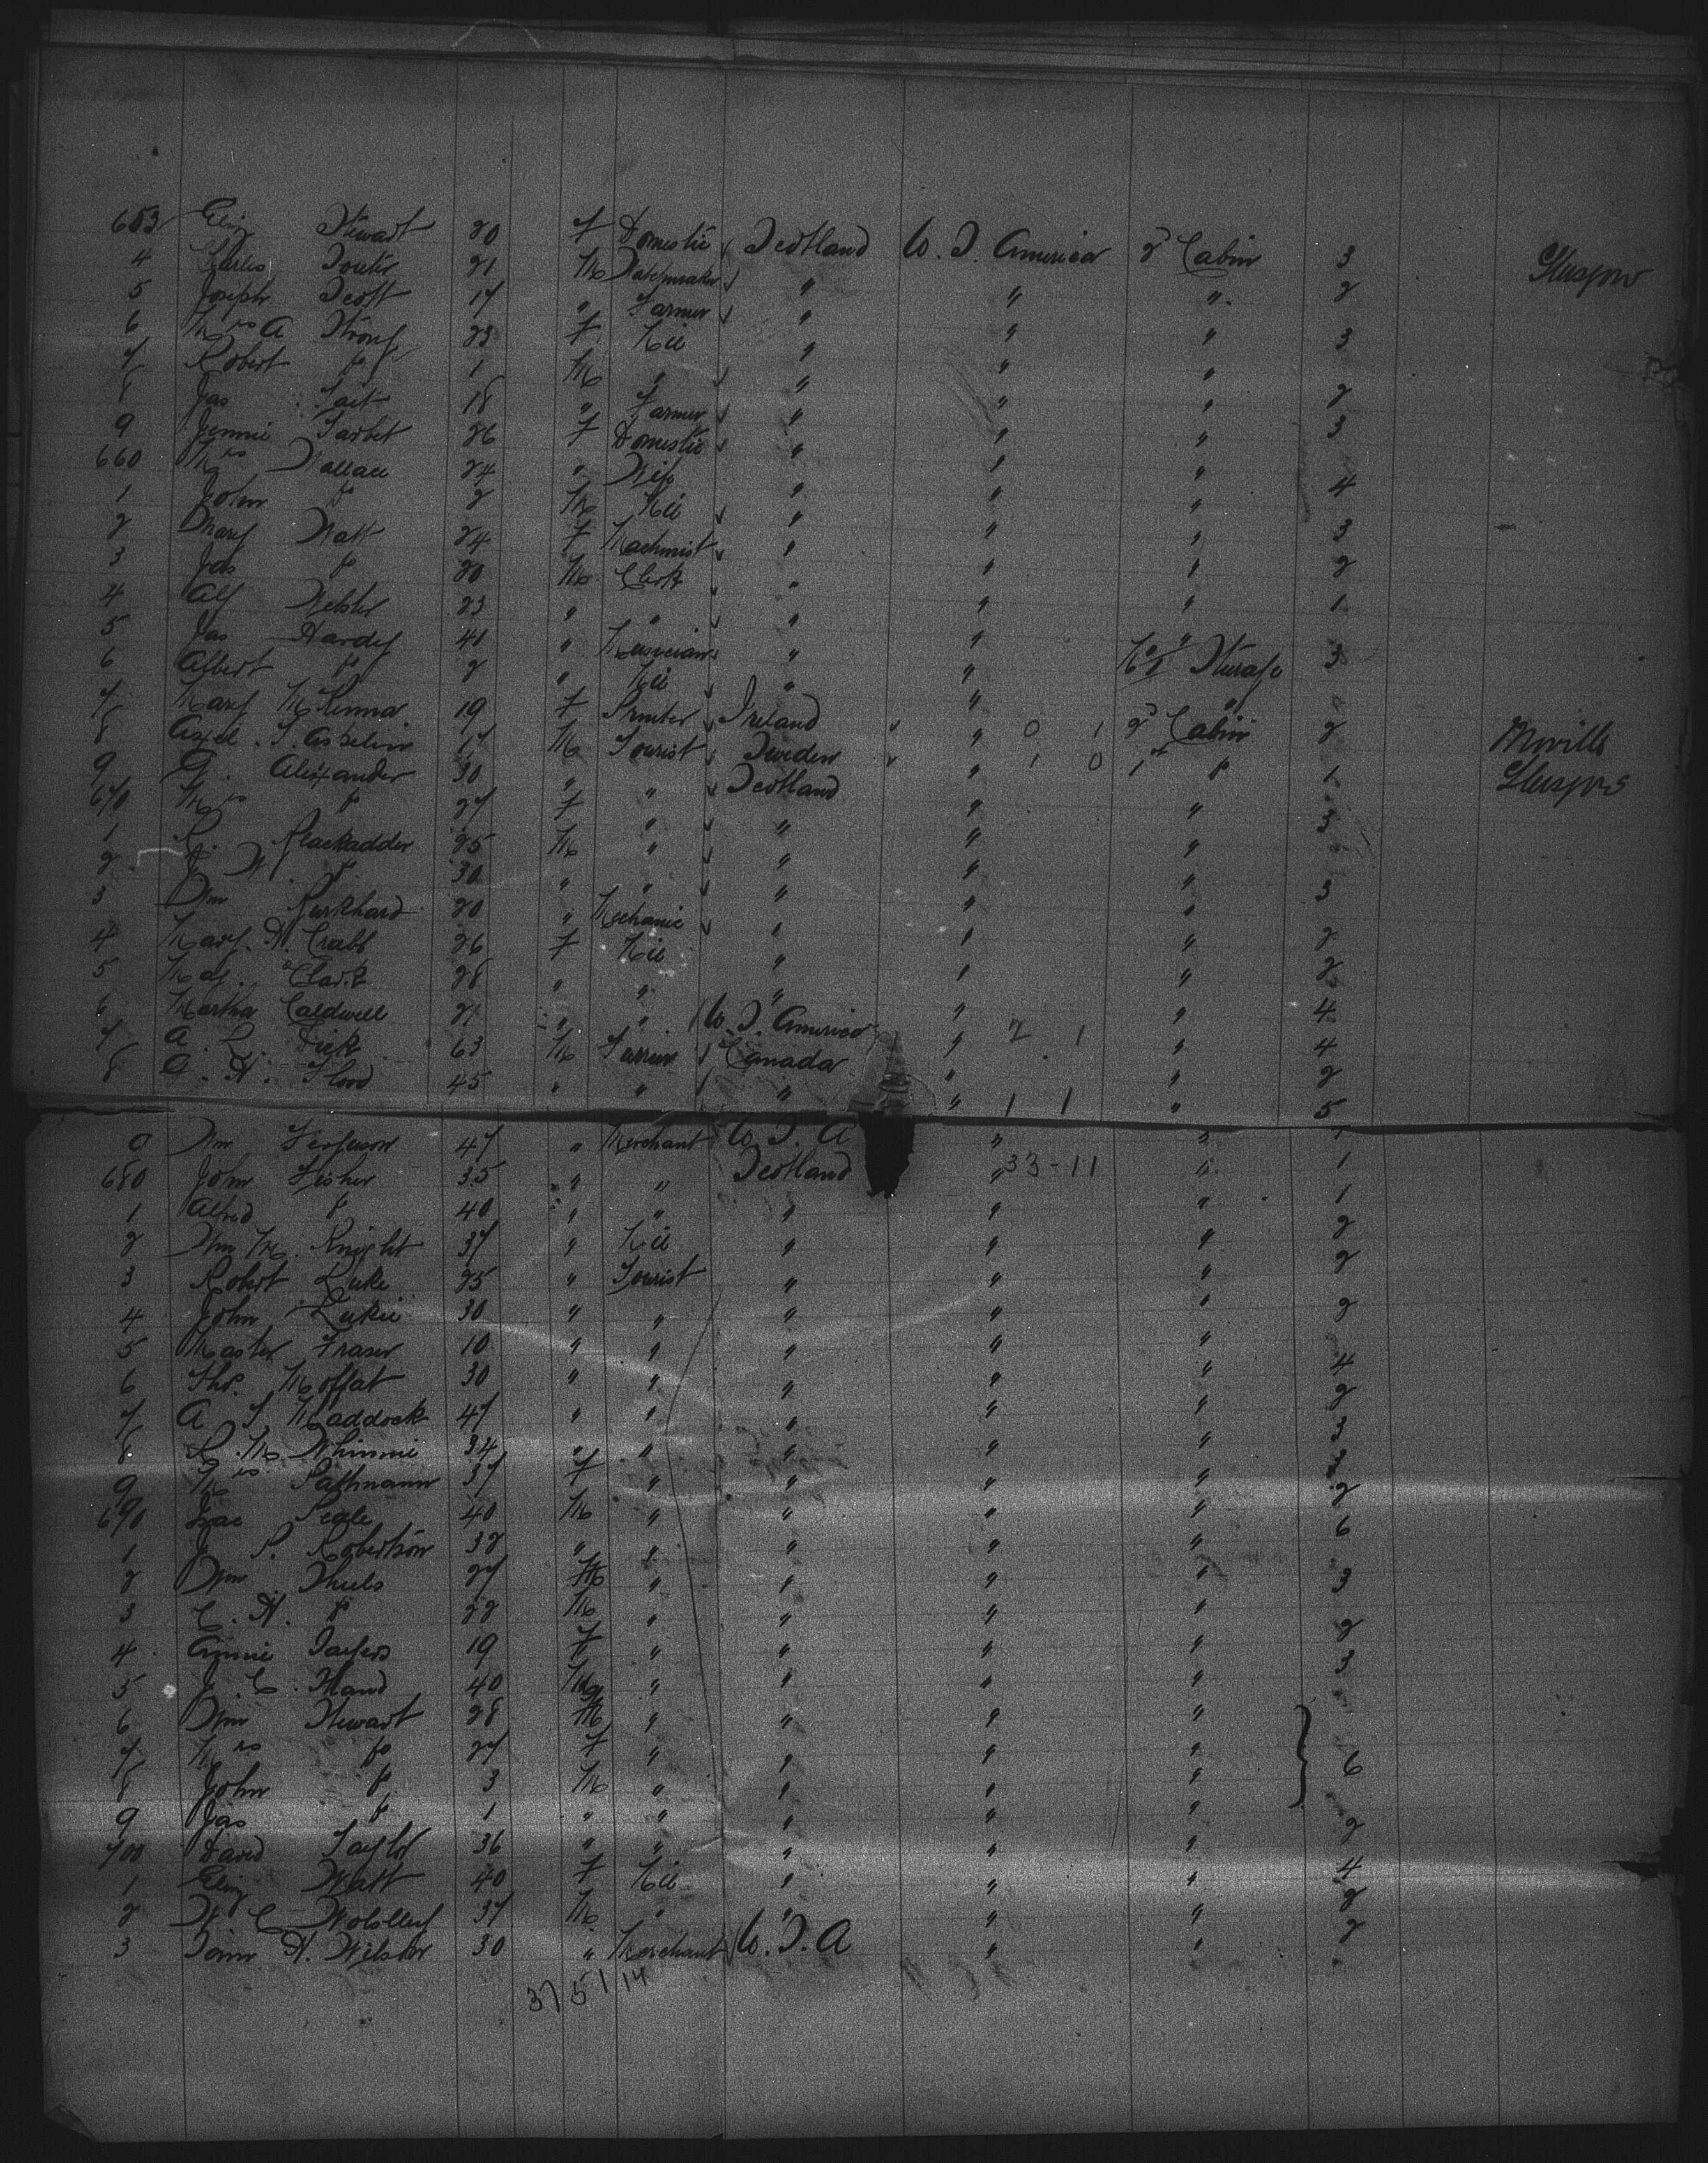 653 Eliz Stewart 20 F Domestic Scotland U. S. America 2d Cabin 3 Glasgow
4 Charles Souter 21 M Watchmaker " " " 2
5 Joseph Scott 17 " Farmer " " "
6 Mrs A Strong 23 F Nil " " " 3
7 Robert Do 1 M " " " "
8 Jas Tait 18 " Farmer " " " 2
9 Jennie Tarbet 26 F Domestic " " " 3
660 Mrs Wallace 24 " Wife " " "
1 John Do 2 M Nil " " " 4
2 Mary Watt 24 F Machinist " " " 3
3 Jas Do 20 M Clerk " " " 2
4 Alf Webster 23 " " " " " 1
5 Jas Hardy 41 " Musician " " "
6 Albert Do 2 " Nil " " Steerage 3
7 Mary McKenna 19 F Printer Ireland " 0 1 2d Cabin 2 Moville
8 Axel . T. Asselin 17 M Tourist Sweden " 1 0 1st Do 1 Glasgow
9 G. Alexander 30 " " Scotland " "
670 Mrs Do 27 F " " " " 3
1 R. Blackadder 25 M " " " "
2 J. H. Do 30 " " " " " 3
3 Wm Burkhard 20 " Mechanic " " " 2
4 Mary. H. Crabb 26 F Nil " " " 2
5 May. Clark 28 " " " " "
6 Martha Caldwell 21 " " U. S. America " " 4
7 A. L. Dick 63 M Farrier Canada " " 4
8 G. H. Flood 45 " " " " 1 1 " 5
9 Wm Ferguson 47 " Merchant U. S. A " " 1
680 John Fisher 35 " " Scotland " 33-11 " 1
1 Alfred Do 40 " " " " " 1
2 Wm M. Knight 37 " Nil " " " 2
3 Robert Luke 25 " Tourist " " " 2
4 John Luke 30 " " " " " 2
5 Master Fraser 10 " " " " "
6 Thos. Moffat 30 " " " " " 4
7 A T Maddock 47 " " " " " 2
8 R. Mc Whinnie 34 " " " " " 3
9 Mrs 37 F " " " " 3
690 Isac 40 M " " " " 2
1 J P. Robertson 32 " " " " " 6
2 Wm 27 M " " " "
3 C. H. Do 22 M " " " " 3
4 Annie 19 F " " " " 2
5 J. C. 40 M " " " " 3
6 Wm Stewart 28 M " " " "
7 Mrs Do 27 F " " " "
8 John Do 3 M " " " " 6
9 Jas Do 1 " " " " "
700 David Taylor 36 " " " " " 2
1 Eliz Watt 40 F Nil " " " 4
2 W C Wolsley 37 M " " " " 2
3 H. Wilson 30 " Merchant U. S. A " " 2
37 51 14